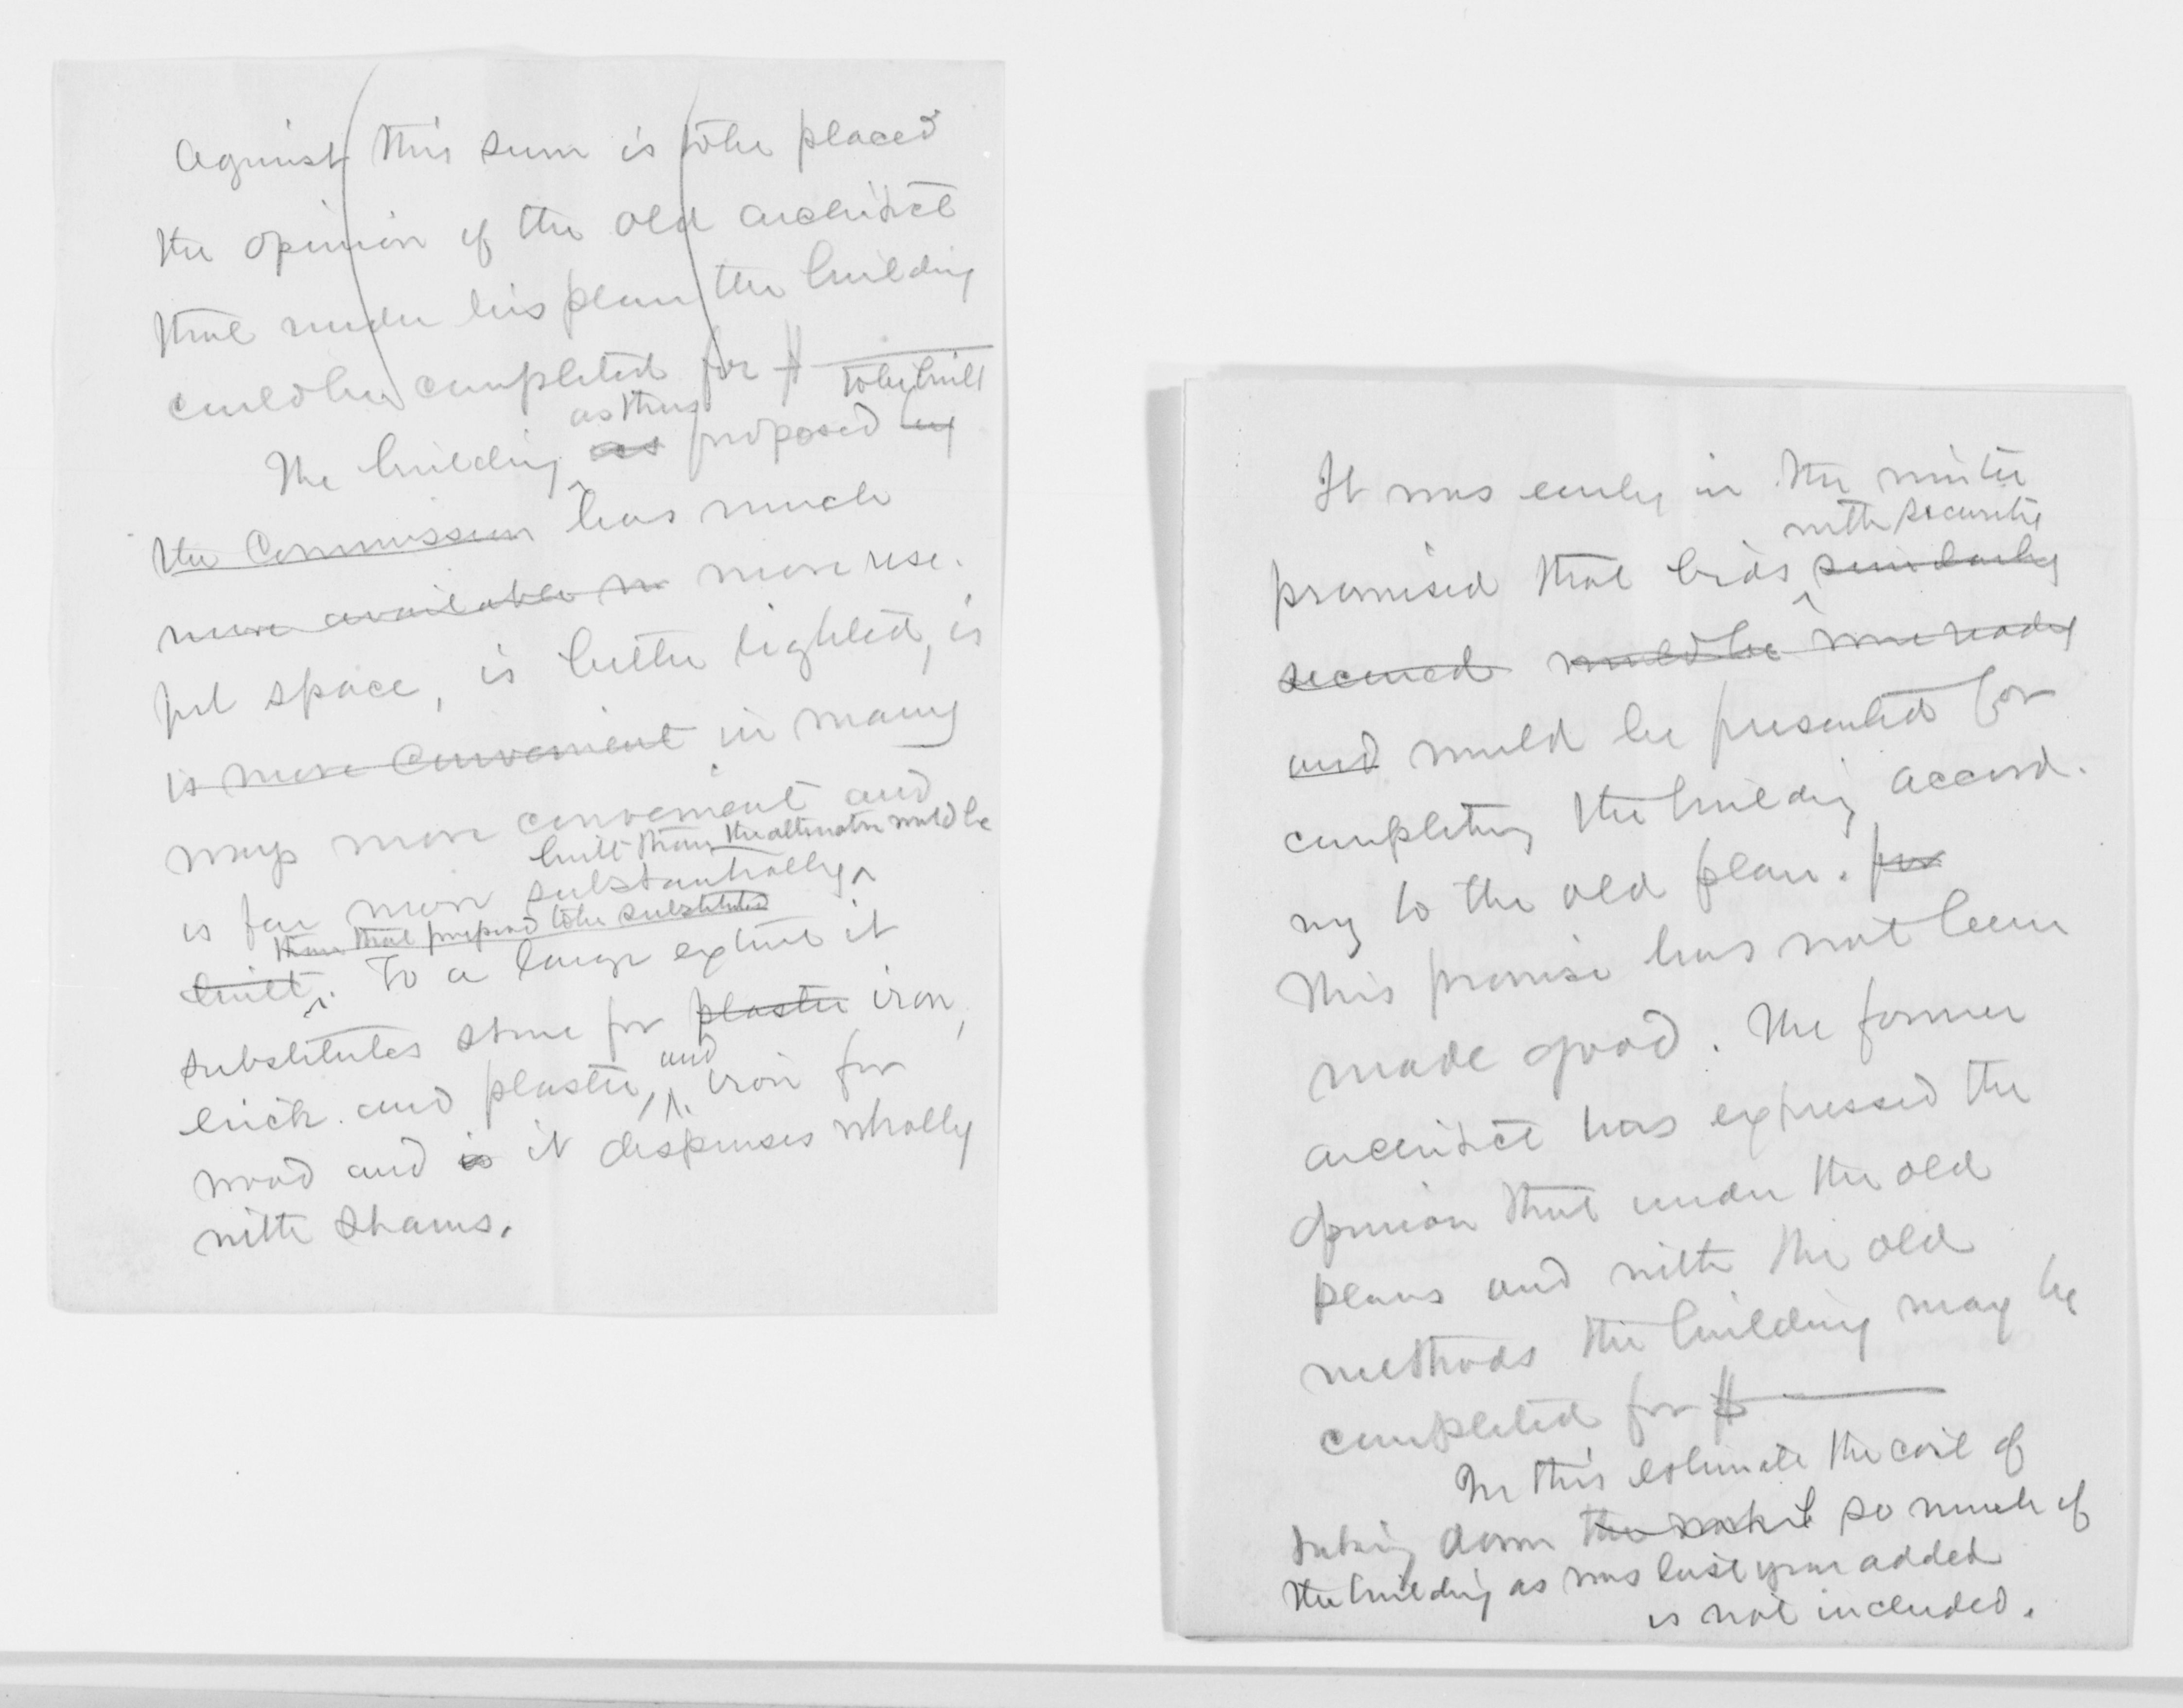 Against this sum is to be placed
the opinion of the old architect
that under his plan the building
could be completed for $ ———
to be built
as thus
The building as proposed by
the Commission has much
more available m more use-
ful space, is better lighted, is
is more convenient in many
ways more convenient and
built than the alternative would be
is far more substantially
than that proposed to be substituted
built. To a large extent it
substitutes stone for plaster iron,
and
brick and plaster, iron for
wood and is it dispenses wholly
with shams.
It was early in the winter
with security
promised that bids similarly
secured would be were ready
and would be presented for
completing the building accord-
ing to the old plan. for
This promise has not been
made good. The former
architect has expressed the
opinion that under the old
plans and with the old
methods the building may be
completed for $ ———
In this estimate the cost of
taking down the so much of
the building as was last year added
is not included.